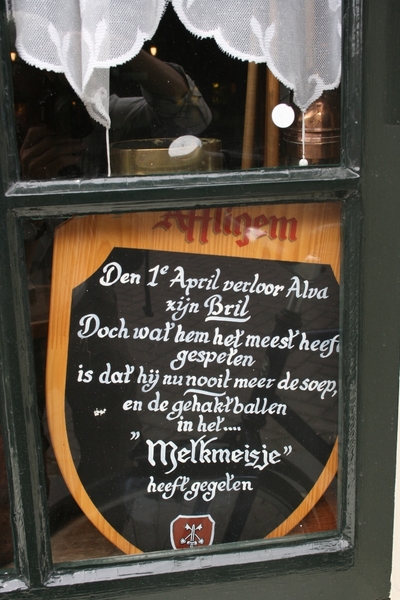 Affligem
Den 1e April verloor Alva
zijn Bril
Doch wat hem het meest heeft
gespeten
is dat hij nu nooit meer de soep,
en de gehaktballen
in het....
"Melkmeisje"
heeft gegeten